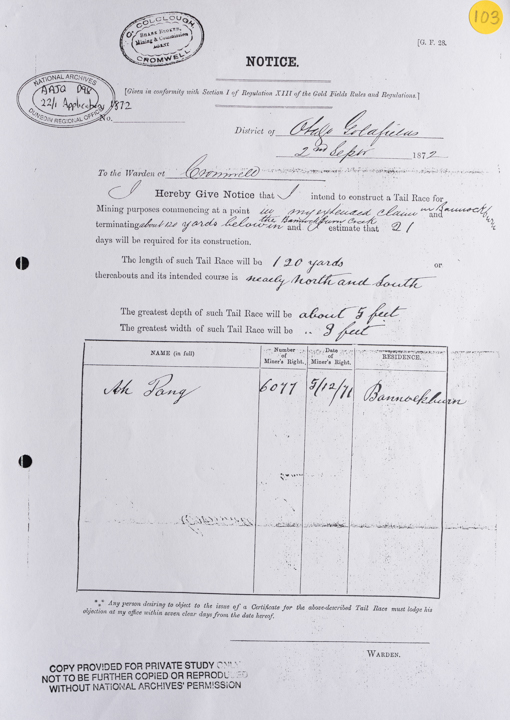 103
[G. F. 28.
C. COLCLOUGH
SHARE BROKER,
Mining & Commission
AGENT
CROMWELL
NOTICE.
[Given in conformity with Section I of Regulation XIII of the Gold Fields Rules and Regulations.]
NATIONAL ARCHIVES
AAJQ D98
22/1 Application 1872
DUNEDIN REGIONAL OFFICE
No.
District of Otago Goldfields
2nd Septr 1872
To the Warden at Cromwell
I Hereby Give Notice that I intend to construct a Tail Race for
Mining purposes commencing at a point in my extended claim in Bannockburn and
terminating about 120 yards below in the Bannockburn Creek and I estimate that 21
days will be required for its construction.
The length of such Tail Race will be 120 yards or
thereabouts and its intended course is nearly North and South
The greatest depth of such Tail Race will be about 5 feet
The greatest width of such Tail Race will be .. 3 feet
NAME (in full) Number of Miner's Right. Date of Miner's Right. RESIDENCE.
Ah Pang 6077 5/12/71 Bannockburn
*** Any person desiring to object to the issue of a Certificate for the above-described Tail Race must lodge his
objection at my office within seven clear days from the date hereof.
WARDEN.
COPY PROVIDED FOR PRIVATE STUDY ONLY
NOT TO BE FURTHER COPIED OR REPRODUCED
WITHOUT NATIONAL ARCHIVES' PERMISSION